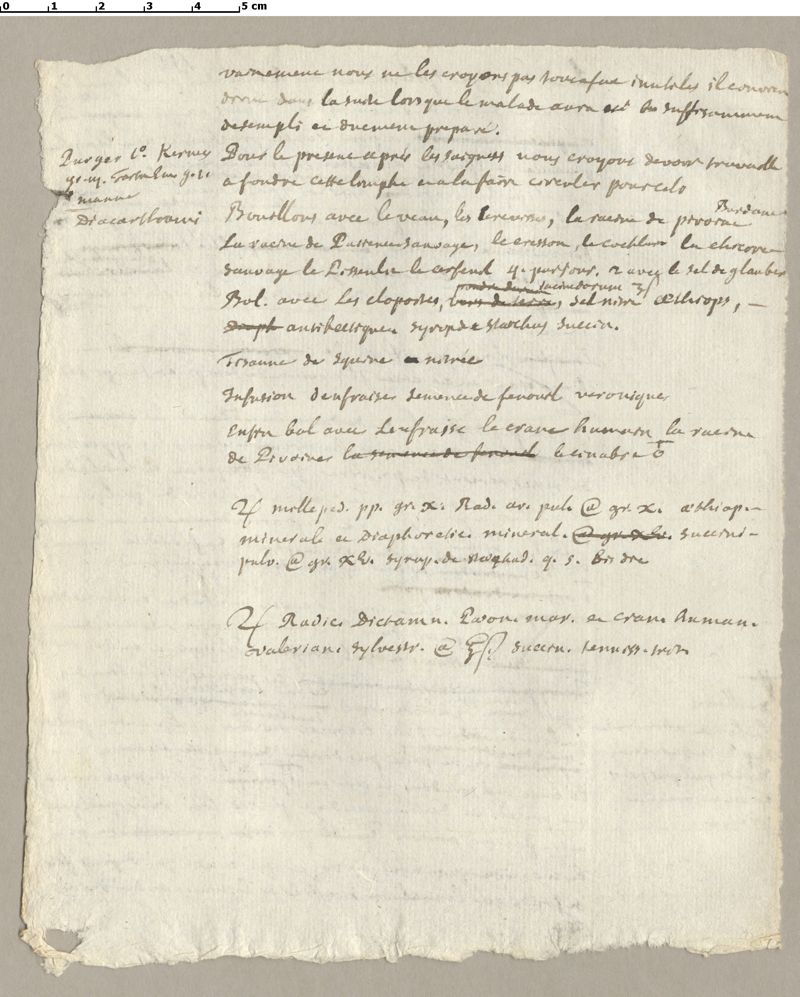 0 1 2 3 4 5 cm
nous ne les croyons pas inutiles il
dans la suite lorsque le malade aura suffisamment
desempli et duement preparé.
Purgés 1o. Kermes
gr. iij.
manne
Diacarthami
Pour le present après les saignées nous croyons devoir travaille
a fondre cette lymphe et a la faire circuler pour cela
Bouillons avec le veau, les ecrevisses, la racine de pivoine Bardane
la racine de Patience sauvage, le cresson, le cochlear la chicorée
sauvage le Pissenlit le cerfeuil 4. par jour. 2 avec le sel de glauber
Bol. avec les cloportes, vers de terre, sel nitre æthiops, —
antihectique. syrop de stœchas succin.
Tisanne de squine nitrée
Infusion deufraise semence de fenouil veronique,
Enfin bol avec Leufraise le crane humain la racine
de Pivoine la semence de fenouil le cinabre
♃ milleped. pp. gr. x. Rad. ar. pul. @ gr. x. æthiop.-
minerale et Diaphoretic. mineral. @ gr. xv. succini-
pulv. @ gr. xv. syrop. de q. s.
♃ Radic. Dictamn. Pæon. mar. et cran. human.
valerian. sylvestr. @ ʒſ succin.